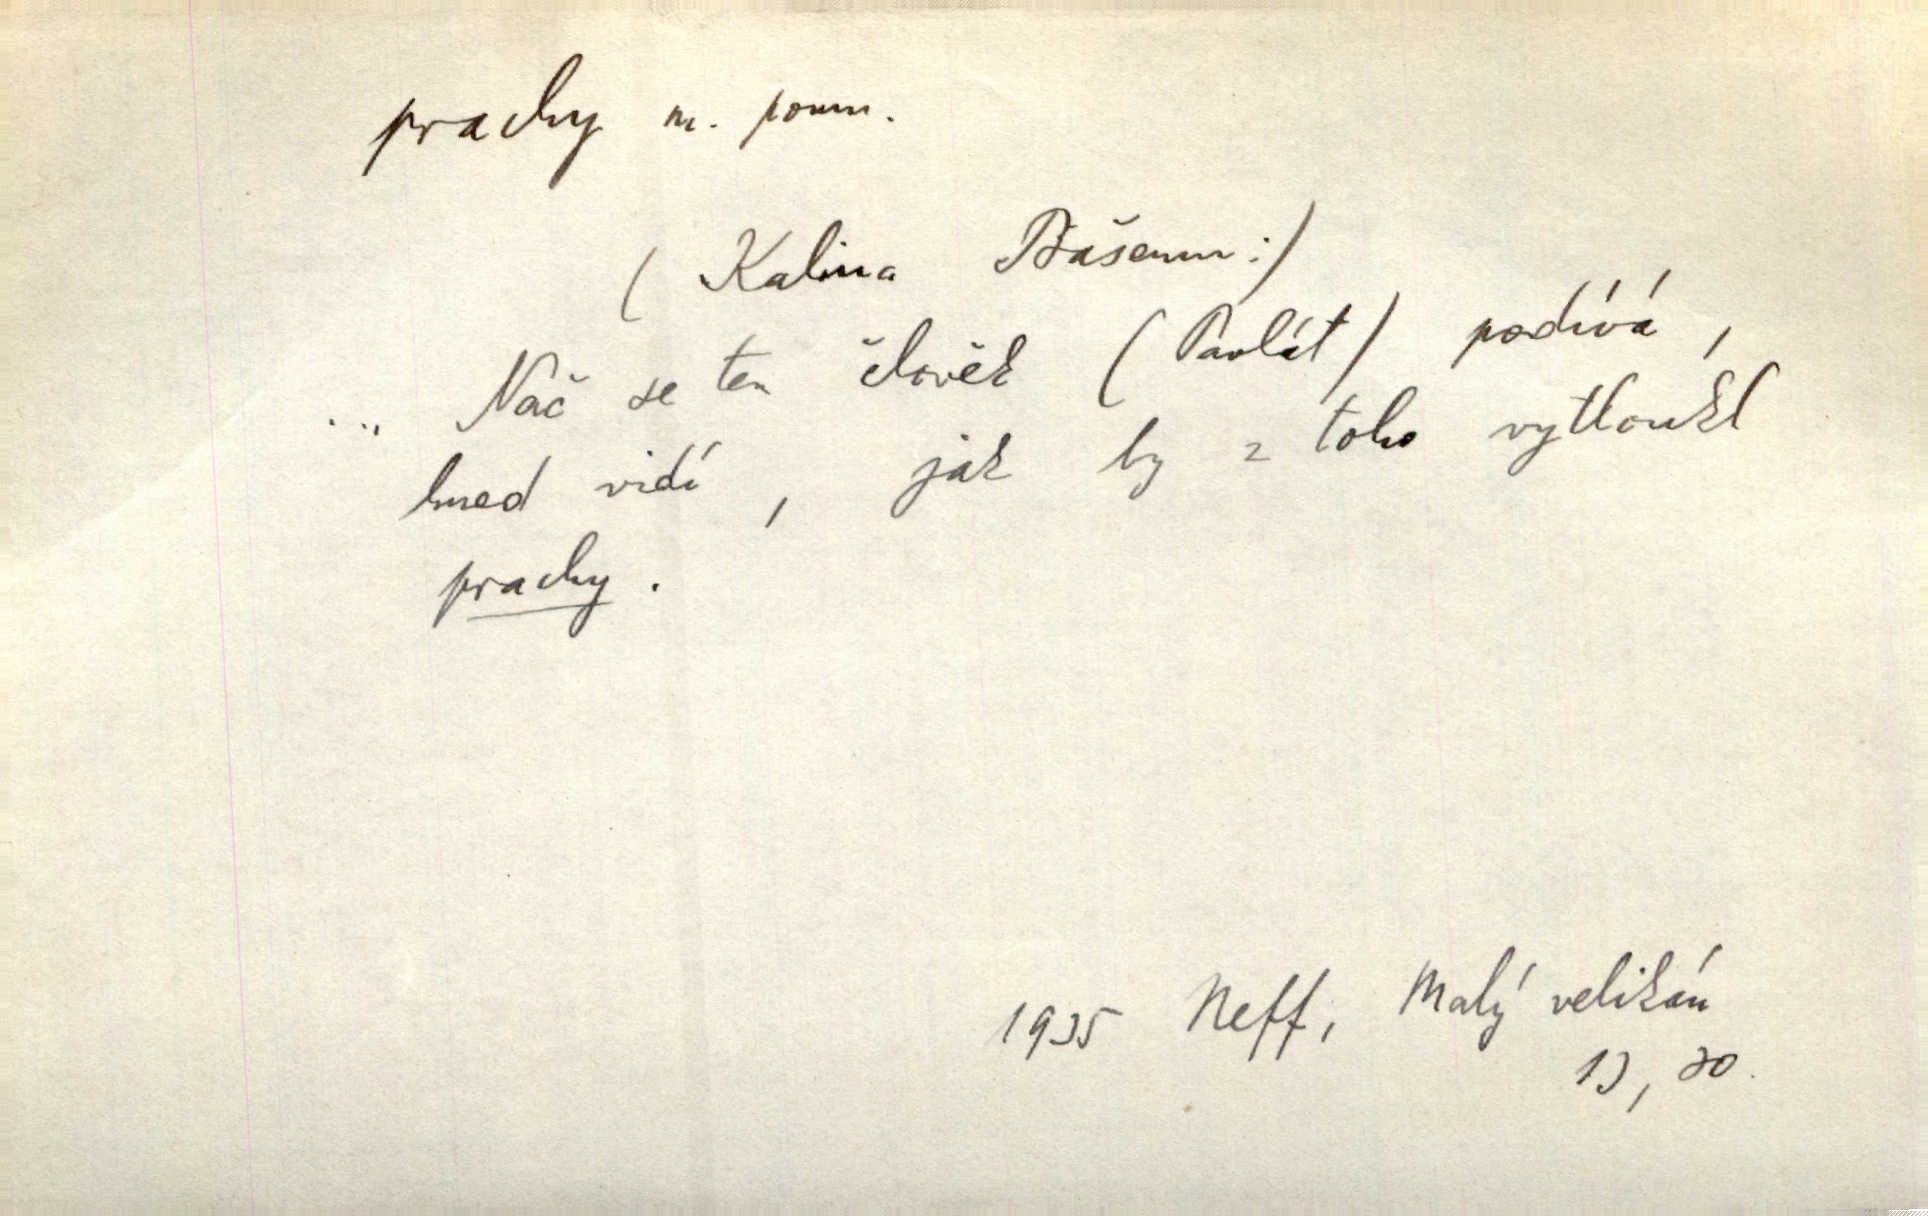 prachy m. pomn.
( Kalina Bašenm :)
... Nač se ten člověk (Pavlát) podívá,
hned vidí, jak by z toho vytloukl
prachy.
1935 Neff, Malý velikán
13, 20.